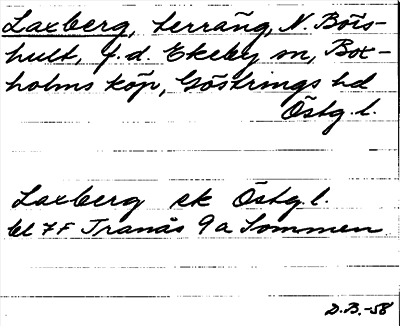 Laxberg, terräng, N. Böls-
hult, f.d. Ekeby sn, Box-
holms köp, Göstrings hd
Östg.l.
Laxberg ek Östg.l.
bl 7F Tranås 9a Sommen
D.B.-58